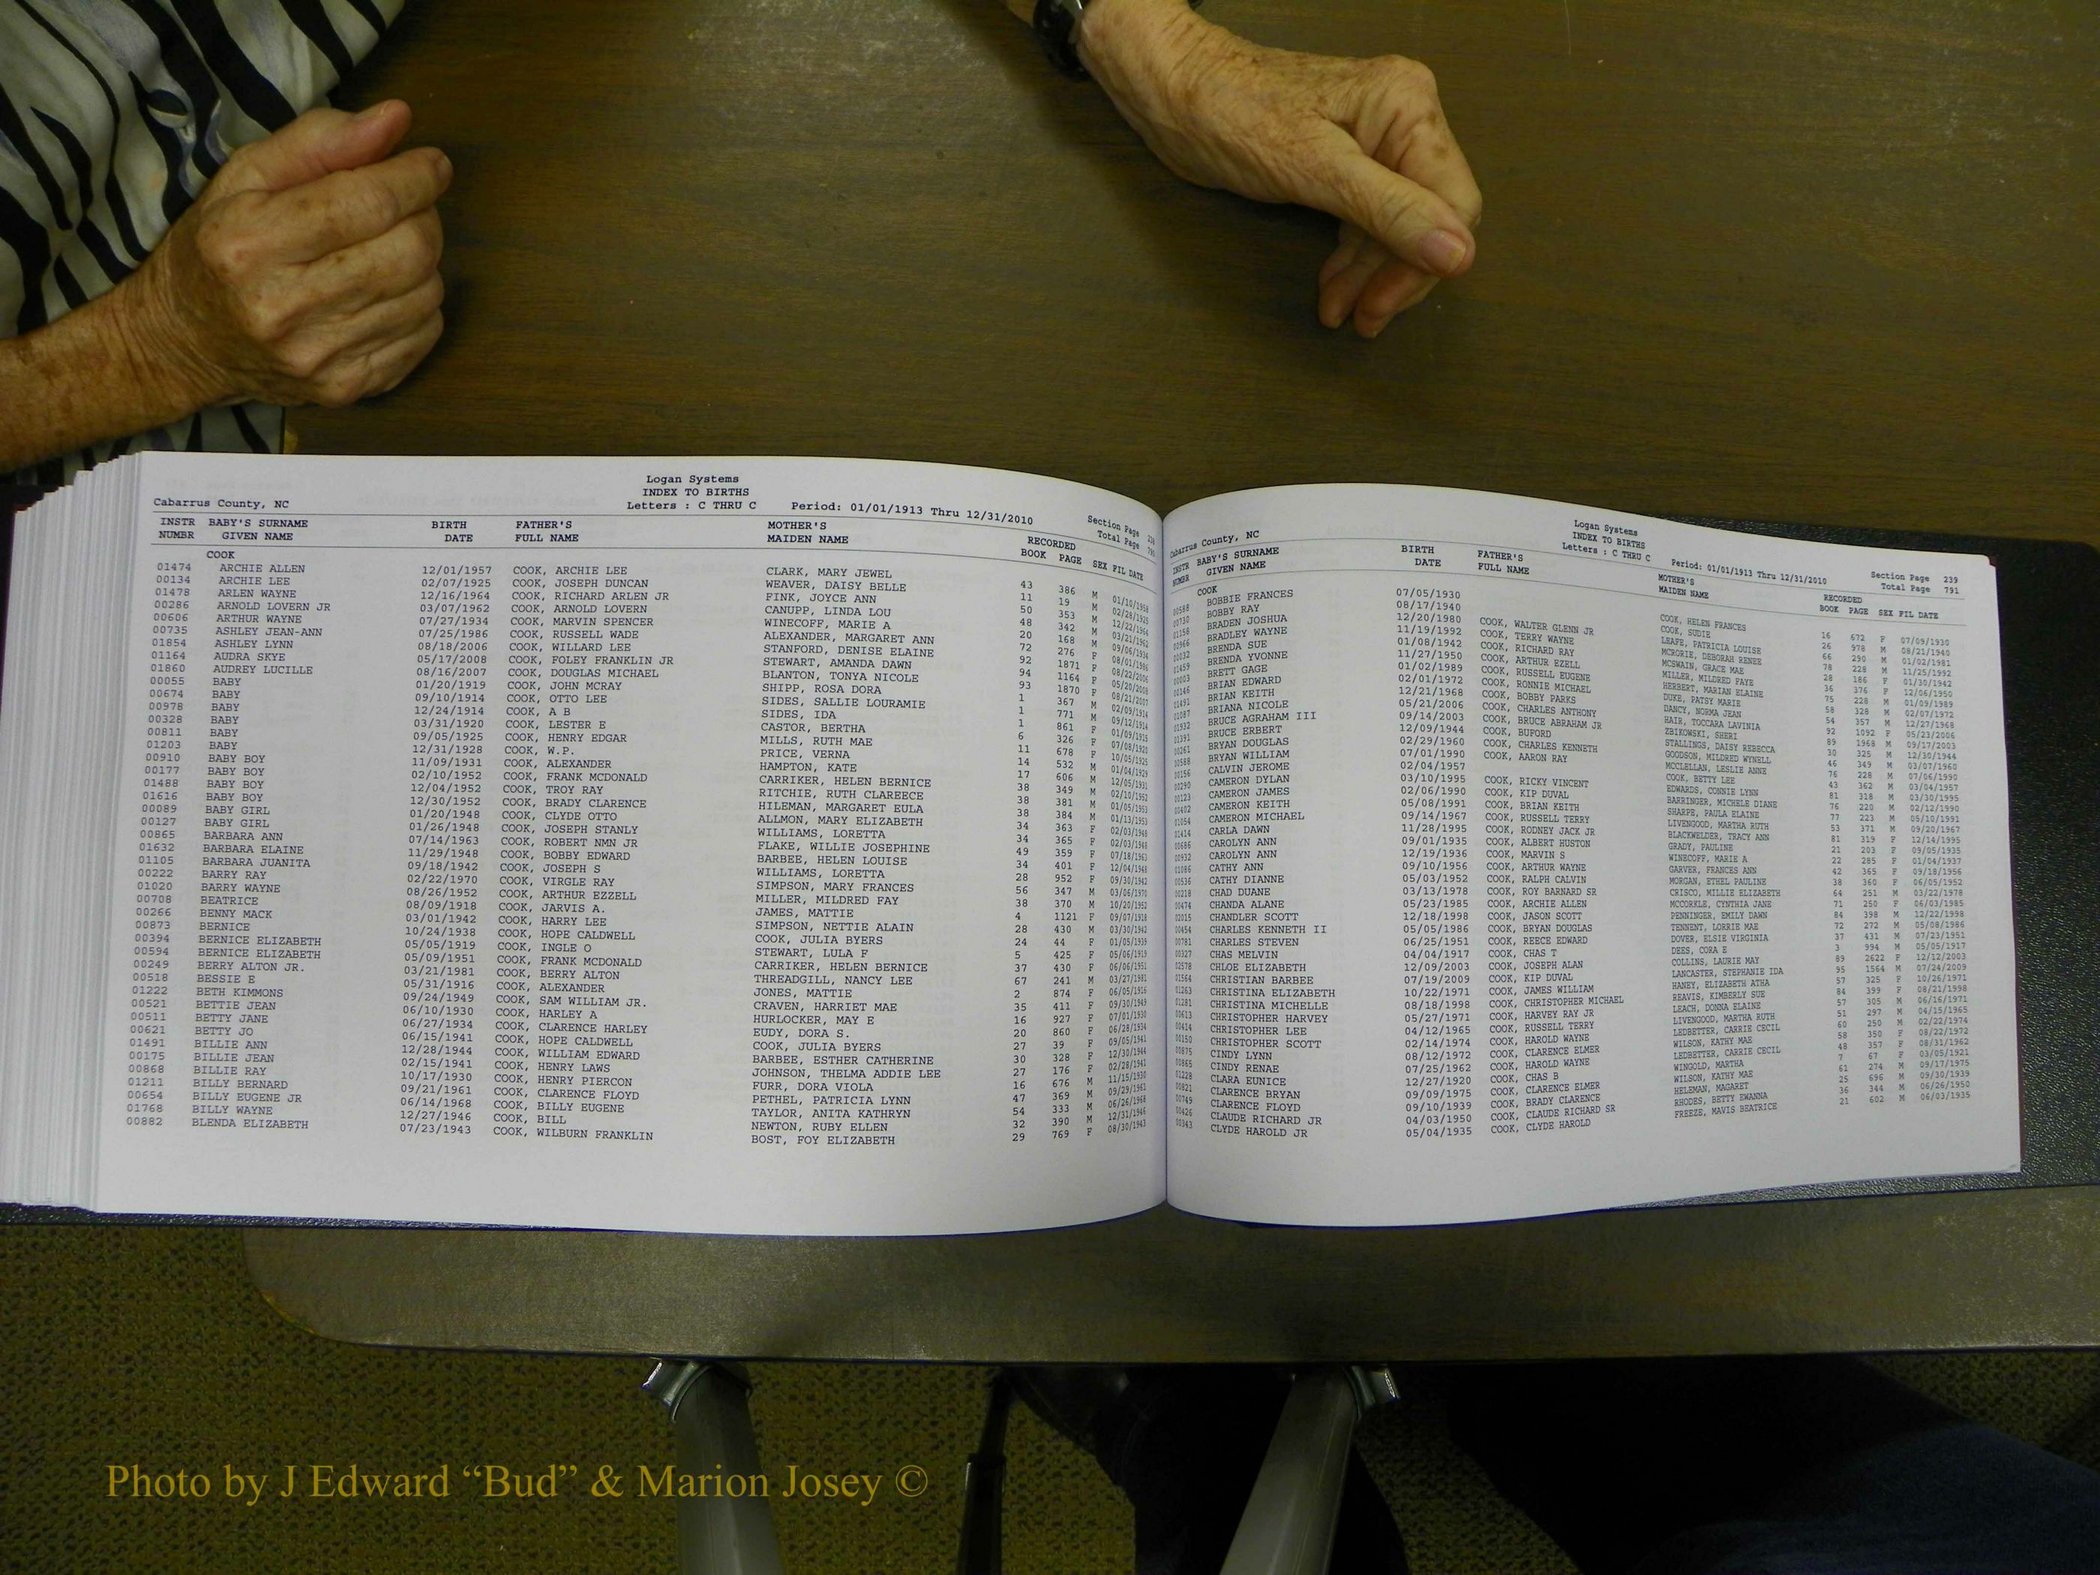 Cabarrus County, NC
Logan Systems
INDEX TO BIRTHS
Letters : C THRU C Period: 01/01/1913 Thru 12/31/2010
Section Page
Total Page
INSTR BABY'S SURNAME BIRTH FATHER'S MOTHER'S RECORDED
NUMBR GIVEN NAME DATE FULL NAME MAIDEN NAME BOOK PAGE SEX FIL DATE
COOK
01474 ARCHIE ALLEN 12/01/1957 COOK, ARCHIE LEE CLARK, MARY JEWEL 43 386 M 01/10/1958
00134 ARCHIE LEE 02/07/1925 COOK, JOSEPH DUNCAN WEAVER, DAISY BELLE 11 19 M 02/28/1925
01478 ARLEN WAYNE 12/16/1964 COOK, RICHARD ARLEN JR FINK, JOYCE ANN 50 353 M 12/22/1964
00286 ARNOLD LOVERN JR 03/07/1962 COOK, ARNOLD LOVERN CANUPP, LINDA LOU 48 342 M 03/21/1962
00606 ARTHUR WAYNE 07/27/1934 COOK, MARVIN SPENCER WINECOFF, MARIE A 20 168 M 09/06/1934
00735 ASHLEY JEAN-ANN 07/25/1986 COOK, RUSSELL WADE ALEXANDER, MARGARET ANN 72 276 F 08/01/1986
01854 ASHLEY LYNN 08/18/2006 COOK, WILLARD LEE STANFORD, DENISE ELAINE 92 1871 F 08/22/2006
01164 AUDRA SKYE 05/17/2008 COOK, FOLEY FRANKLIN JR STEWART, AMANDA DAWN 94 1164 F 05/20/2008
01860 AUDREY LUCILLE 08/16/2007 COOK, DOUGLAS MICHAEL BLANTON, TONYA NICOLE 93 1870 F 08/21/2007
00055 BABY 01/20/1919 COOK, JOHN MCRAY SHIPP, ROSA DORA 1 367 M 02/09/1914
00674 BABY 09/10/1914 COOK, OTTO LEE SIDES, SALLIE LOURAMIE 1 771 M 09/12/1914
00978 BABY 12/24/1914 COOK, A B SIDES, IDA 1 861 F 01/09/1915
00328 BABY 03/31/1920 COOK, LESTER E CASTOR, BERTHA 6 326 F 07/08/1920
00811 BABY 09/05/1925 COOK, HENRY EDGAR MILLS, RUTH MAE 11 678 F 10/05/1925
01203 BABY 12/31/1928 COOK, W.P. PRICE, VERNA 14 532 M 01/04/1929
00910 BABY BOY 11/09/1931 COOK, ALEXANDER HAMPTON, KATE 17 606 M 12/05/1931
00177 BABY BOY 02/10/1952 COOK, FRANK MCDONALD CARRIKER, HELEN BERNICE 38 349 M 02/10/1952
01488 BABY BOY 12/04/1952 COOK, TROY RAY RITCHIE, RUTH CLAREECE 38 381 M 01/05/1953
01616 BABY BOY 12/30/1952 COOK, BRADY CLARENCE HILEMAN, MARGARET EULA 38 384 M 01/13/1953
00089 BABY GIRL 01/20/1948 COOK, CLYDE OTTO ALLMON, MARY ELIZABETH 34 363 F 02/03/1948
00127 BABY GIRL 01/26/1948 COOK, JOSEPH STANLY WILLIAMS, LORETTA 34 365 F 02/03/1948
00865 BARBARA ANN 07/14/1963 COOK, ROBERT NMN JR FLAKE, WILLIE JOSEPHINE 49 359 F 07/18/1963
01632 BARBARA ELAINE 11/29/1948 COOK, BOBBY EDWARD BARBEE, HELEN LOUISE 34 401 F 12/04/1948
01105 BARBARA JUANITA 09/18/1942 COOK, JOSEPH S WILLIAMS, LORETTA 28 952 F 09/30/1942
00222 BARRY RAY 02/22/1970 COOK, VIRGLE RAY SIMPSON, MARY FRANCES 56 347 M 03/06/1970
01020 BARRY WAYNE 08/26/1952 COOK, ARTHUR EZZELL MILLER, MILDRED FAY 38 370 M 10/20/1952
00708 BEATRICE 08/09/1918 COOK, JARVIS A. JAMES, MATTIE 4 1121 F 09/07/1918
00266 BENNY MACK 03/01/1942 COOK, HARRY LEE SIMPSON, NETTIE ALAIN 28 430 M 03/30/1942
00873 BERNICE 10/24/1938 COOK, HOPE CALDWELL COOK, JULIA BYERS 24 44 F 01/05/1939
00394 BERNICE ELIZABETH 05/05/1919 COOK, INGLE O STEWART, LULA F 5 425 F 05/06/1919
00594 BERNICE ELIZABETH 05/09/1951 COOK, FRANK MCDONALD CARRIKER, HELEN BERNICE 37 430 F 06/06/1951
00249 BERRY ALTON JR. 03/21/1981 COOK, BERRY ALTON THREADGILL, NANCY LEE 67 241 M 03/27/1981
00518 BESSIE E 05/31/1916 COOK, ALEXANDER JONES, MATTIE 2 874 F 06/05/1916
01222 BETH KIMMONS 09/24/1949 COOK, SAM WILLIAM JR. CRAVEN, HARRIET MAE 35 411 F 09/30/1949
00521 BETTIE JEAN 06/10/1930 COOK, HARLEY A HURLOCKER, MAY E 16 927 F 07/01/1930
00511 BETTY JANE 06/27/1934 COOK, CLARENCE HARLEY EUDY, DORA S. 20 860 F 06/28/1934
00621 BETTY JO 06/15/1941 COOK, HOPE CALDWELL COOK, JULIA BYERS 27 39 F 09/05/1941
01491 BILLIE ANN 12/28/1944 COOK, WILLIAM EDWARD BARBEE, ESTHER CATHERINE 30 328 F 12/30/1944
00175 BILLIE JEAN 02/15/1941 COOK, HENRY LAWS JOHNSON, THELMA ADDIE LEE 27 176 F 02/28/1941
00868 BILLIE RAY 10/17/1930 COOK, HENRY PIERCON FURR, DORA VIOLA 16 676 M 11/15/1930
01211 BILLY BERNARD 09/21/1961 COOK, CLARENCE FLOYD PETHEL, PATRICIA LYNN 47 369 M 09/29/1961
00654 BILLY EUGENE JR 06/14/1968 COOK, BILLY EUGENE TAYLOR, ANITA KATHRYN 54 333 M 06/26/1968
01768 BILLY WAYNE 12/27/1946 COOK, BILL NEWTON, RUBY ELLEN 32 390 M 12/31/1946
00882 BLENDA ELIZABETH 07/23/1943 COOK, WILBURN FRANKLIN BOST, FOY ELIZABETH 29 769 F 08/30/1943
Cabarrus County, NC
Logan Systems
INDEX TO BIRTHS
Letters : C THRU C Period: 01/01/1913 Thru 12/31/2010
Section Page 239
Total Page 791
INSTR BABY'S SURNAME BIRTH FATHER'S MOTHER'S RECORDED
NUMBR GIVEN NAME DATE FULL NAME MAIDEN NAME BOOK PAGE SEX FIL DATE
COOK
00588 BOBBIE FRANCES 07/05/1930 COOK, HELEN FRANCES 16 672 F 07/09/1930
00730 BOBBY RAY 08/17/1940 COOK, SUDIE 26 978 M 08/21/1940
01156 BRADEN JOSHUA 12/20/1980 COOK, WALTER GLENN JR LEAFE, PATRICIA LOUISE 66 290 M 01/02/1981
00966 BRADLEY WAYNE 11/19/1992 COOK, TERRY WAYNE MCRORIE, DEBORAH RENEE 78 228 M 11/25/1992
00032 BRENDA SUE 01/08/1942 COOK, RICHARD RAY MCSWAIN, GRACE MAE 28 186 F 01/30/1942
01459 BRENDA YVONNE 11/27/1950 COOK, ARTHUR EZELL MILLER, MILDRED FAYE 36 376 F 12/06/1950
00003 BRETT GAGE 01/02/1989 COOK, RUSSELL EUGENE HERBERT, MARIAN ELAINE 75 228 M 01/09/1989
00146 BRIAN EDWARD 02/01/1972 COOK, RONNIE MICHAEL DUKE, PATSY MARIE 58 328 M 02/07/1972
01491 BRIAN KEITH 12/21/1968 COOK, BOBBY PARKS DANCY, NORMA JEAN 54 357 M 12/27/1968
01087 BRIANA NICOLE 05/21/2006 COOK, CHARLES ANTHONY HAIR, TOCCARA LAVINIA 92 1092 F 05/23/2006
01932 BRUCE AGRAHAM III 09/14/2003 COOK, BRUCE ABRAHAM JR ZBIKOWSKI, SHERI 89 1968 M 09/17/2003
01391 BRUCE ERBERT 12/09/1944 COOK, BUFORD STALLINGS, DAISY REBECCA 30 325 M 12/30/1944
00261 BRYAN DOUGLAS 02/29/1960 COOK, CHARLES KENNETH GOODSON, MILDRED WYNELL 46 349 M 03/07/1960
00588 BRYAN WILLIAM 07/01/1990 COOK, AARON RAY MCCLELLAN, LESLIE ANNE 76 228 M 07/06/1990
00156 CALVIN JEROME 02/04/1957 COOK, BETTY LEE 43 362 M 03/04/1957
00290 CAMERON DYLAN 03/10/1995 COOK, RICKY VINCENT EDWARDS, CONNIE LYNN 81 318 M 03/30/1995
00123 CAMERON JAMES 02/06/1990 COOK, KIP DUVAL BARRINGER, MICHELE DIANE 76 220 M 02/12/1990
00402 CAMERON KEITH 05/08/1991 COOK, BRIAN KEITH SHARPE, PAULA ELAINE 77 223 M 05/10/1991
01054 CAMERON MICHAEL 09/14/1967 COOK, RUSSELL TERRY LIVENGOOD, MARTHA RUTH 53 371 M 09/20/1967
01414 CARLA DAWN 11/28/1995 COOK, RODNEY JACK JR BLACKWELDER, TRACY ANN 81 319 F 12/14/1995
00686 CAROLYN ANN 09/01/1935 COOK, ALBERT HUSTON GRADY, PAULINE 21 203 F 09/05/1935
00932 CAROLYN ANN 12/19/1936 COOK, MARVIN S WINECOFF, MARIE A 22 285 F 01/04/1937
01086 CATHY ANN 09/10/1956 COOK, ARTHUR WAYNE GARVER, FRANCES ANN 42 365 F 09/18/1956
00536 CATHY DIANNE 05/03/1952 COOK, RALPH CALVIN MORGAN, ETHEL PAULINE 38 360 F 06/05/1952
00218 CHAD DUANE 03/13/1978 COOK, ROY BARNARD SR CRISCO, MILLIE ELIZABETH 64 251 M 03/22/1978
00474 CHANDA ALANE 05/23/1985 COOK, ARCHIE ALLEN MCCORKLE, CYNTHIA JANE 71 250 F 06/03/1985
02015 CHANDLER SCOTT 12/18/1998 COOK, JASON SCOTT PENNINGER, EMILY DAWN 84 398 M 12/22/1998
00454 CHARLES KENNETH II 05/05/1986 COOK, BRYAN DOUGLAS TENNENT, LORRIE MAE 72 272 M 05/08/1986
00781 CHARLES STEVEN 06/25/1951 COOK, REECE EDWARD DOVER, ELSIE VIRGINIA 37 431 M 07/23/1951
00327 CHAS MELVIN 04/04/1917 COOK, CHAS T DEES, CORA E 3 994 M 05/05/1917
02578 CHLOE ELIZABETH 12/09/2003 COOK, JOSEPH ALAN COLLINS, LAURIE MAY 89 2622 F 12/12/2003
01564 CHRISTIAN BARBEE 07/19/2009 COOK, KIP DUVAL LANCASTER, STEPHANIE IDA 95 1564 M 07/24/2009
01263 CHRISTINA ELIZABETH 10/22/1971 COOK, JAMES WILLIAM HANEY, ELIZABETH ATHA 57 325 F 10/26/1971
01281 CHRISTINA MICHELLE 08/18/1998 COOK, CHRISTOPHER MICHAEL REAVIS, KIMBERLY SUE 84 399 F 08/21/1998
00613 CHRISTOPHER HARVEY 05/27/1971 COOK, HARVEY RAY JR LEACH, DONNA ELAINE 57 305 M 06/16/1971
00414 CHRISTOPHER LEE 04/12/1965 COOK, RUSSELL TERRY LIVENGOOD, MARTHA RUTH 51 297 M 04/15/1965
00150 CHRISTOPHER SCOTT 02/14/1974 COOK, HAROLD WAYNE LEDBETTER, CARRIE CECIL 60 250 M 02/22/1974
00875 CINDY LYNN 08/12/1972 COOK, CLARENCE ELMER WILSON, KATHY MAE 58 350 F 08/22/1972
00865 CINDY RENAE 07/25/1962 COOK, HAROLD WAYNE LEDBETTER, CARRIE CECIL 48 357 F 08/31/1962
01228 CLARA EUNICE 12/27/1920 COOK, CHAS B WINGOLD, MARTHA 7 67 F 03/05/1921
00821 CLARENCE BRYAN 09/09/1975 COOK, CLARENCE ELMER WILSON, KATHY MAE 61 274 M 09/17/1975
00749 CLARENCE FLOYD 09/10/1939 COOK, BRADY CLARENCE HELEMAN, MAGARET 25 696 M 09/30/1939
00426 CLAUDE RICHARD JR 04/03/1950 COOK, CLAUDE RICHARD SR RHODES, BETTY EWANNA 36 344 M 06/26/1950
00343 CLYDE HAROLD JR 05/04/1935 COOK, CLYDE HAROLD FREEZE, MAVIS BEATRICE 21 602 M 06/03/1935
Photo by J Edward “Bud” & Marion Josey ©